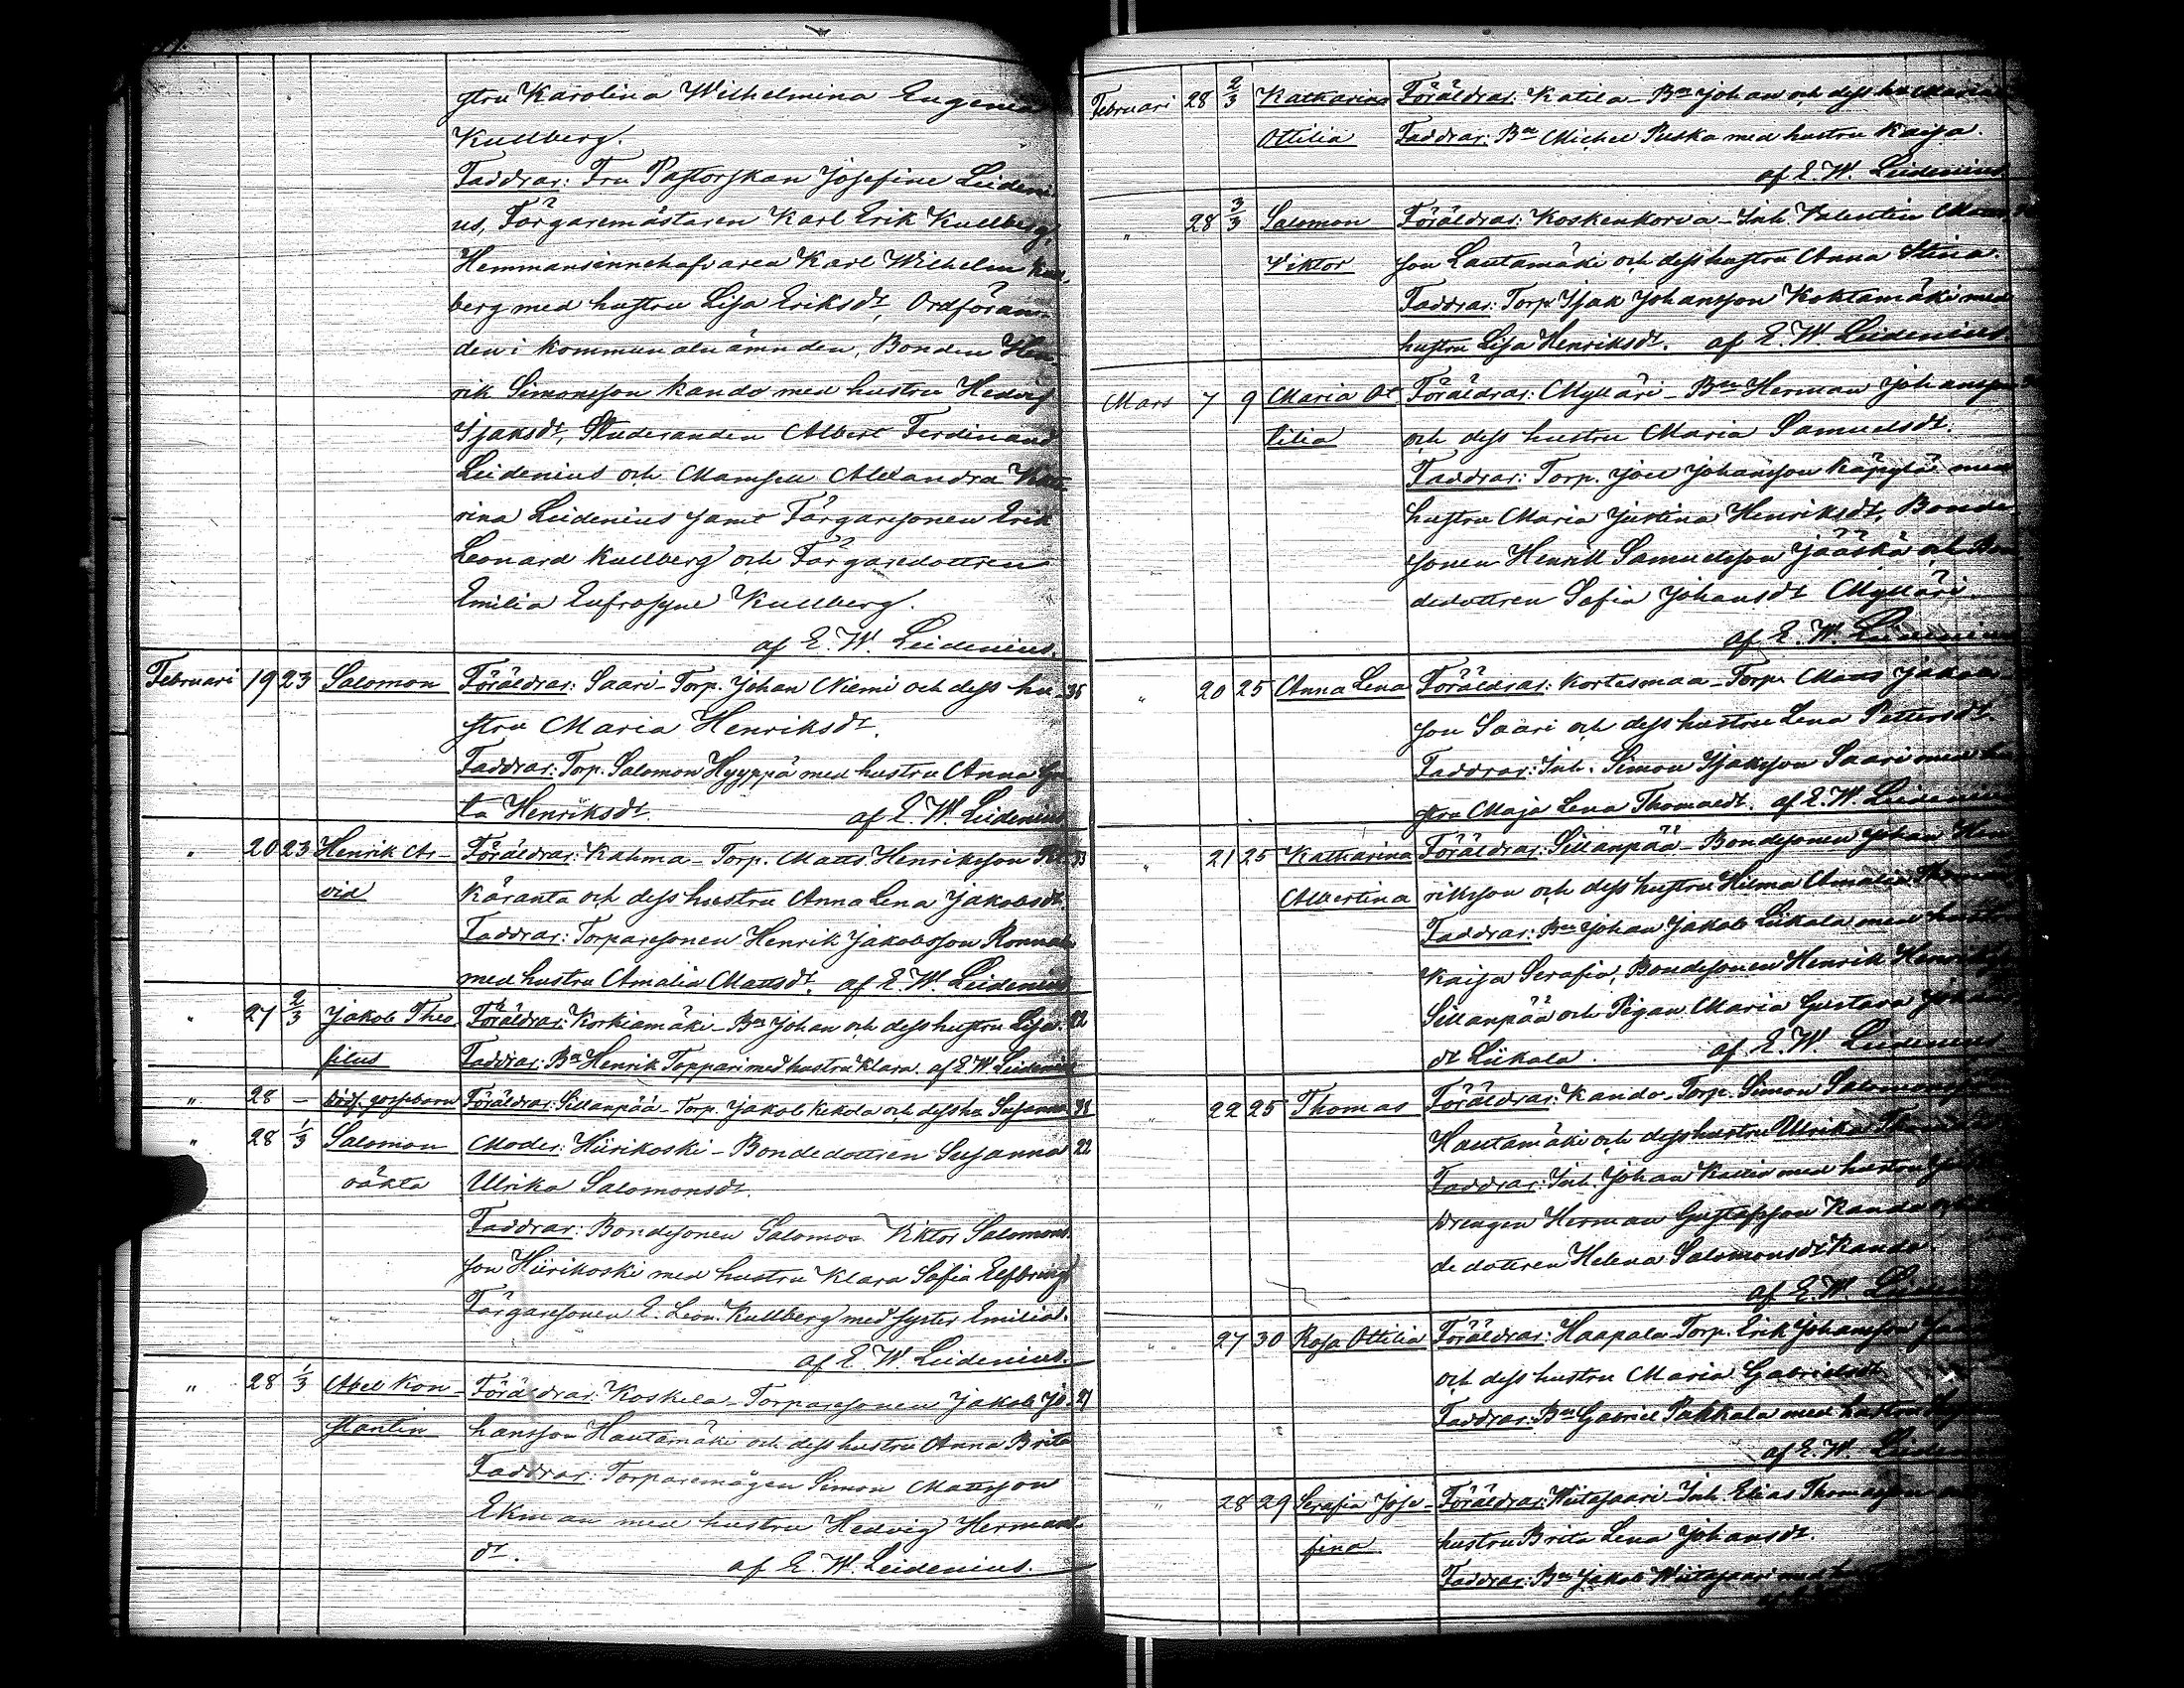 stru Karolina Wilhelmina Eugenia
Kullberg.
Faddrar: Fru Pastorskan Josefine Leideni
us, Färgaremästaren Karl Erik Kullberg,
Hemmansinnehafvaren Karl Wilhelm Kull
berg med hustru Lisa Eriksdt, Ordföran
den i kommunalnämnden, Bonden Hen
rik Simonsson Kando med hustru Hedvig
Isaksdt, Studeranden Albert Ferdinand
Leidenius och Mamsell Alexandra
rina Leidenius samt Färgaresonen Erik
Leonard Kullberg och Färgaredottren
Emilia Eufrosyne Kullberg.
af E. W. Leidenius.
Februari 19 23 Salomon Föräldrar: Saari - Torp. Johan Niemi och dess hu- 36
stru Maria Henriksdt.
Faddrar: Torp. Salomon Hyyppä med hustru Anna Gre
ta Henriksdt. af E. W. Leidenius
" 20 23 Henrik Ar- Föräldrar: Kahma - Torp. Matts Henriksson 33
vid Käranta och dess hustru Anna Lena Jakobsdt.
Faddrar: Torparesonen Henrik Jakobsson
med hustru Amalia Mattsdt. af E. W. Leidenius
" 27 2/3 Jakob Theo Föräldrar: Korkiamäki - Bn Johan och dess hustru Lisa 22
filus Faddrar: Bn Henrik Toppari med hustru Klara. af E. W. Leidenius
" 28 - Dödf. gossebarn Föräldrar: Sillanpää - Torp. Jakob Kekola och dess hu Susanna 38
" 28 1/3 Salomon Moder: Hiirikoski - Bondedottren Susanna 22
oäkta Ulrika Salomonsdt.
Faddrar: Bondesonen Salomon Viktor Salomons
son Hiirikoski med hustru Klara Sofia Elfbring
Färgaresonen E. Leon. Kullberg med syster Emilia.
af E. W. Leidenius.
" 28 1/3 Abel Kon- Föräldrar: Koskela - Torparesonen Jakob Jo- 27
stantin hansson Hautamäki och dess hustru Anna Brita
Faddrar: Torparemågen Simon Mattsson
Ekman med hustru Hedvig Hermans
dt. af E. W. Leidenius.
Februari 28 2/3 Katharina Föräldrar: Katila - Bn Johan och dess hu Maria
Ottilia Faddrar: Bn Michel Puska med hustru Kaisa.
af E. W. Leidenius
" 28 3/3 Salomon Föräldrar: Koskenkorva - Inh. Valentin Matts
Viktor son Lautamäki och dess hustru Anna Stina.
Faddrar: Torp. Isak Johansson Kohtamäki med
hustru Lisa Henriksdt. af E. W. Leidenius.
Mars 7 9 Maria Ot Föräldrar: Mylläri - Bn Herman Johansson
tilia och dess hustru Maria Samuelsdt.
Faddrar: Torp. Joel Johansson Käpylä med
hustru Maria Justina Henriksdt, Bonde
sonen Henrik Samuelsson Jääskä och Bon
dedottren Sofia Johansdt Mylläri
af E. W. Leidenius
" 20 25 Anna Lena Föräldrar: Kortesmaa - Torp. Matts Jakobs
son Saari och dess hustru Lena Pettersdt.
Faddrar: Inh. Simon Isaksson Saari med hu
stru Maja Lena Thomaedt. af E. W. Leidenius
" 21 25 Katharina Föräldrar: Sillanpää - Bondesonen Johan Hen
Albertina riksson och dess hustru Hilma Amalia
Faddrar: Bn Johan Jakob Liikala med hustru
Kaisa Serafia, Bondesonen Henrik
Sillanpää och Pigan Maria Gustava Johans
dt Liikala. af E. W. Leidenius
" 22 25 Thomas Föräldrar: Kando - Torp. Simon Salomonsson
Hautamäki och dess hustru Ulrika
Faddrar: Inh. Johan Kallio med hustru
Drengen Herman Gustafsson Kando och
dedottren Helena Salomonsdt Kando.
af E. W.
" 27 30 Rosa Ottilia Föräldrar: Haapala - Torp. Erik Johansson
och dess hustru Maria Gabrielsdt
Faddrar: Bn Gabriel Pakkala med hustru
af E. W. Leidenius
" 28 29 Serafia Jose- Föräldrar: Wiitasaari - Inh. Elias Thomasson
fina hustru Brita Lena Johansdt.
Faddrar: Bn Jakob Wiitasaari med